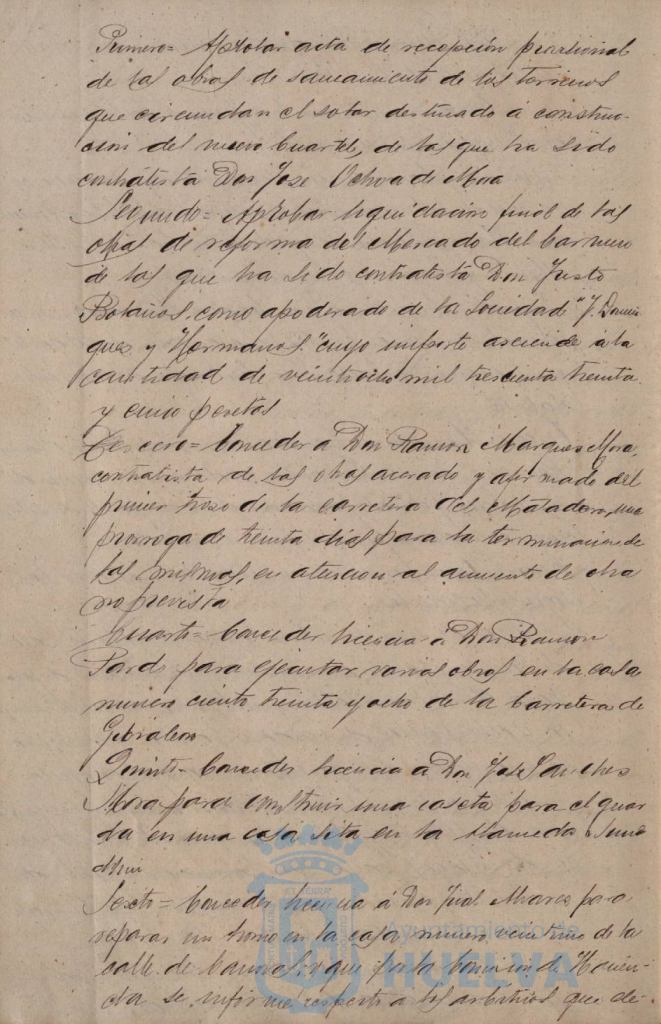 Primero= Aprobar acta de recepción provisional
de las obras de saneamiento de los terrenos
que circundan el solar destinado á construc-
ción del nuevo Cuartel, de las que ha sido
contratista Don Jose Ochoa de Mora
Segundo= Aprobar liquidación final de las
obras de reforma del Mercado del Carmen
de las que ha sido contratista Don Justo
Bolaños, como apoderado de la Sociedad "J. Domin
gues y Hermanos" cuyo importe asciende á la
cantidad de veintiocho mil trescienta treinta
y cinco pesetas
Tercero= Conceder a Don Ramon Marques Mora,
contratista de las obras acerado y afirmado del
primer trozo de la carretera del Matadero, una
prorroga de treinta dias para la terminacion de
las mismas, en atencion al aumento de obra
no prevista
Cuarto= Conceder licencia á Don Ramon
Pardo para ejecutar varias obras en la casa
numero ciento treinta y ocho de la Carretera de
Gibraleon
Quinto= Conceder licencia á Don Jose Sanches
Mora para construir una caseta para el guar
da en una casa sita en la Alameda Sund
Sexto= Conceder licencia á Don José Alvares para
reparar un horno en la casa numero veintiuno de la
calle de Canovas, y que por la Comision de Hacien-
da se informe respecto a los arbitrios que de-
Ayuntamiento de
HUELVA